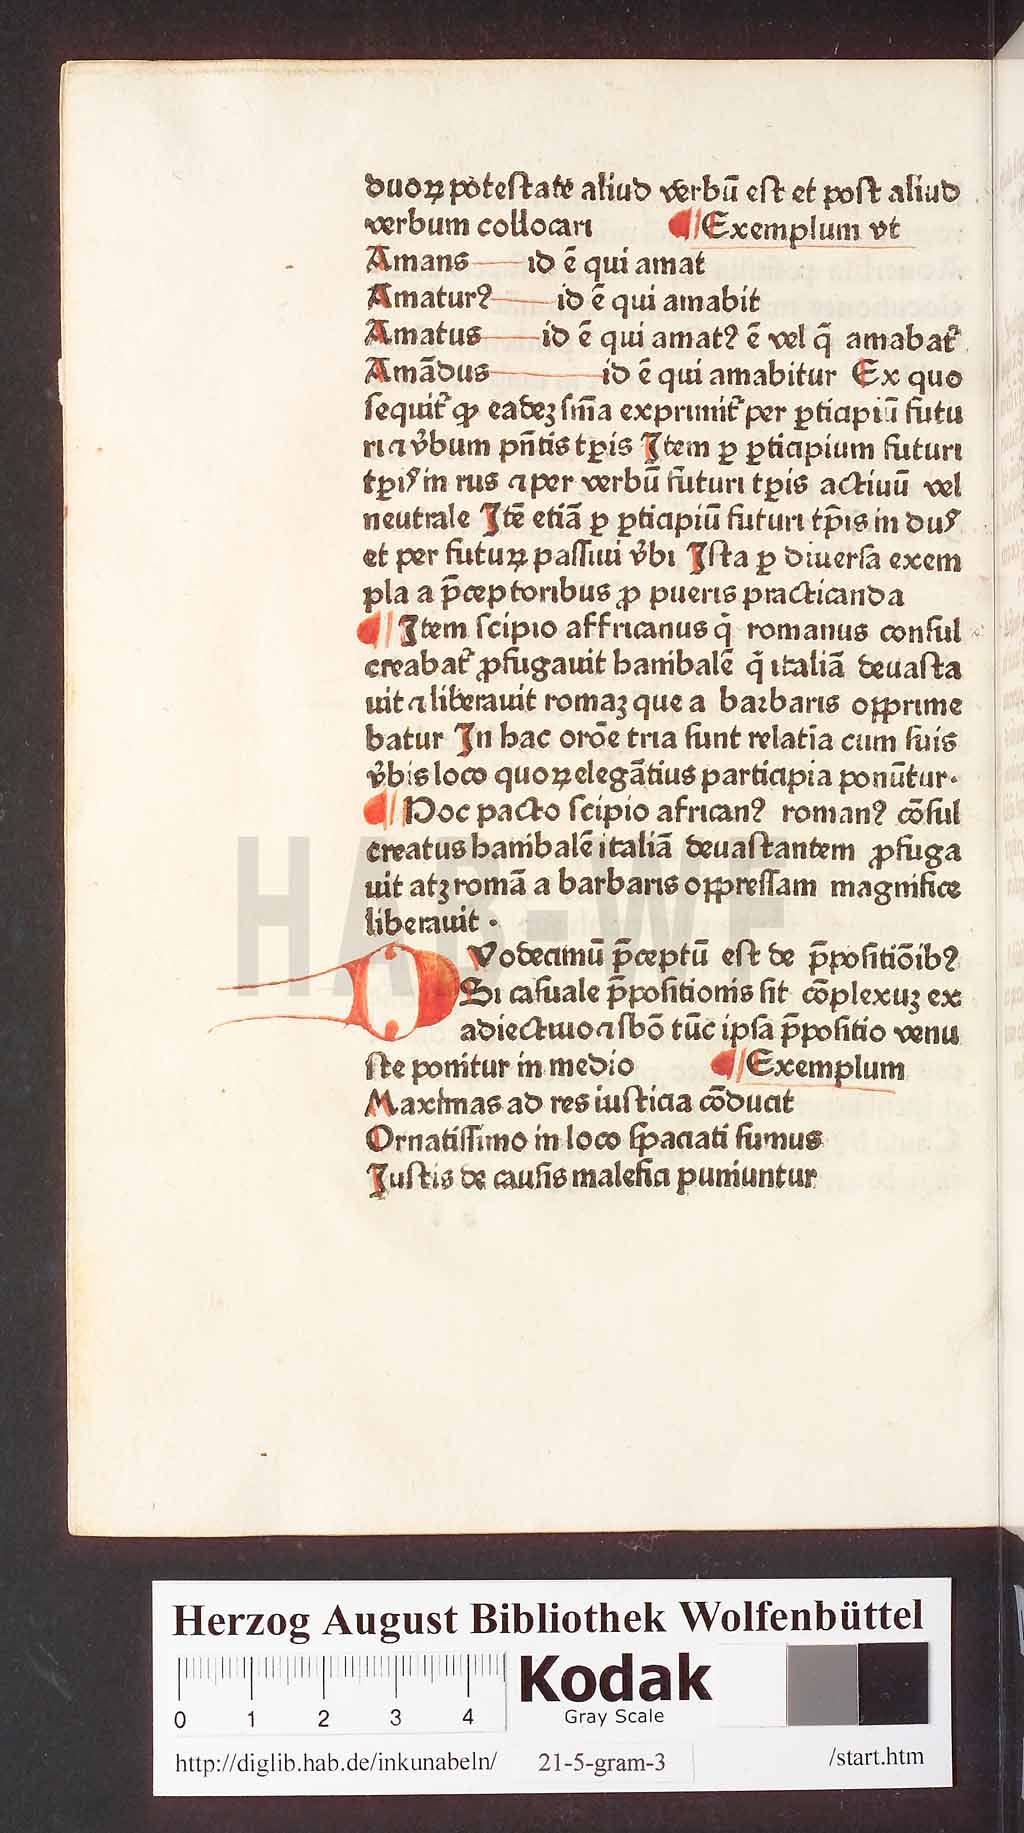 duoꝝ potestate aliud verbū est et post aliud
verbum collocari ¶ Exemplum vt
Amans id ē qui amat
Amaturꝰ id ē qui amabit
Amatus id ē qui amatꝰ ē vel q̄ amabat᷑
Amādus id ē qui amabitur Ex quo
sequit᷑ ꝙ eadeꝫ sn̄ia exprimit᷑ per ꝑticipiū futu
ri ⁊ v̓bum pn̄tis tꝑis Item ꝑ ꝑticipium futuri
tꝑis in rus ⁊ per verbū futuri tꝑis actiuū vel
neutrale Itē etiā ꝑ ꝑticipiū futuri tꝑis in dus
et per futuꝝ passiui v̓bi Ista ꝑ diuersa exem
pla a p̄ceptoribus ꝓ pueris practicanda
¶ Item scipio affricanus q̄ romanus consul
creabat᷑ ꝓfugauit hanibalē q̄ italiā deuasta
uit ⁊ liberauit romaꝫ que a barbaris opprime
batur In hac orōe tria sunt relatīa cum suis
v̓bis loco quoꝝ elegātius participia ponūtur.
¶ Hoc pacto scipio africanꝰ romanꝰ cōsul
creatus hanibalē italiā deuastantem ꝓfuga
uit atqꝫ romā a barbaris oppressam magnifice
liberauit .
DVodecimū p̄ceptū est de p̄positiōibꝰ
Si casuale p̄positionis sit cōplexuꝫ ex
adiectiuo ⁊ sbō tūc ipsa p̄positio venu
ste ponitur in medio ¶ Exemplum
Maximas ad res iusticia cōducit
Ornatissimo in loco spaciati sumus
Iustis de causis malefici puniuntur
HAB-WF
Herzog August Bibliothek Wolfenbüttel
0 1 2 3 4
Kodak
Gray Scale
http://diglib.hab.de/inkunabeln/ 21-5-gram-3 /start.htm